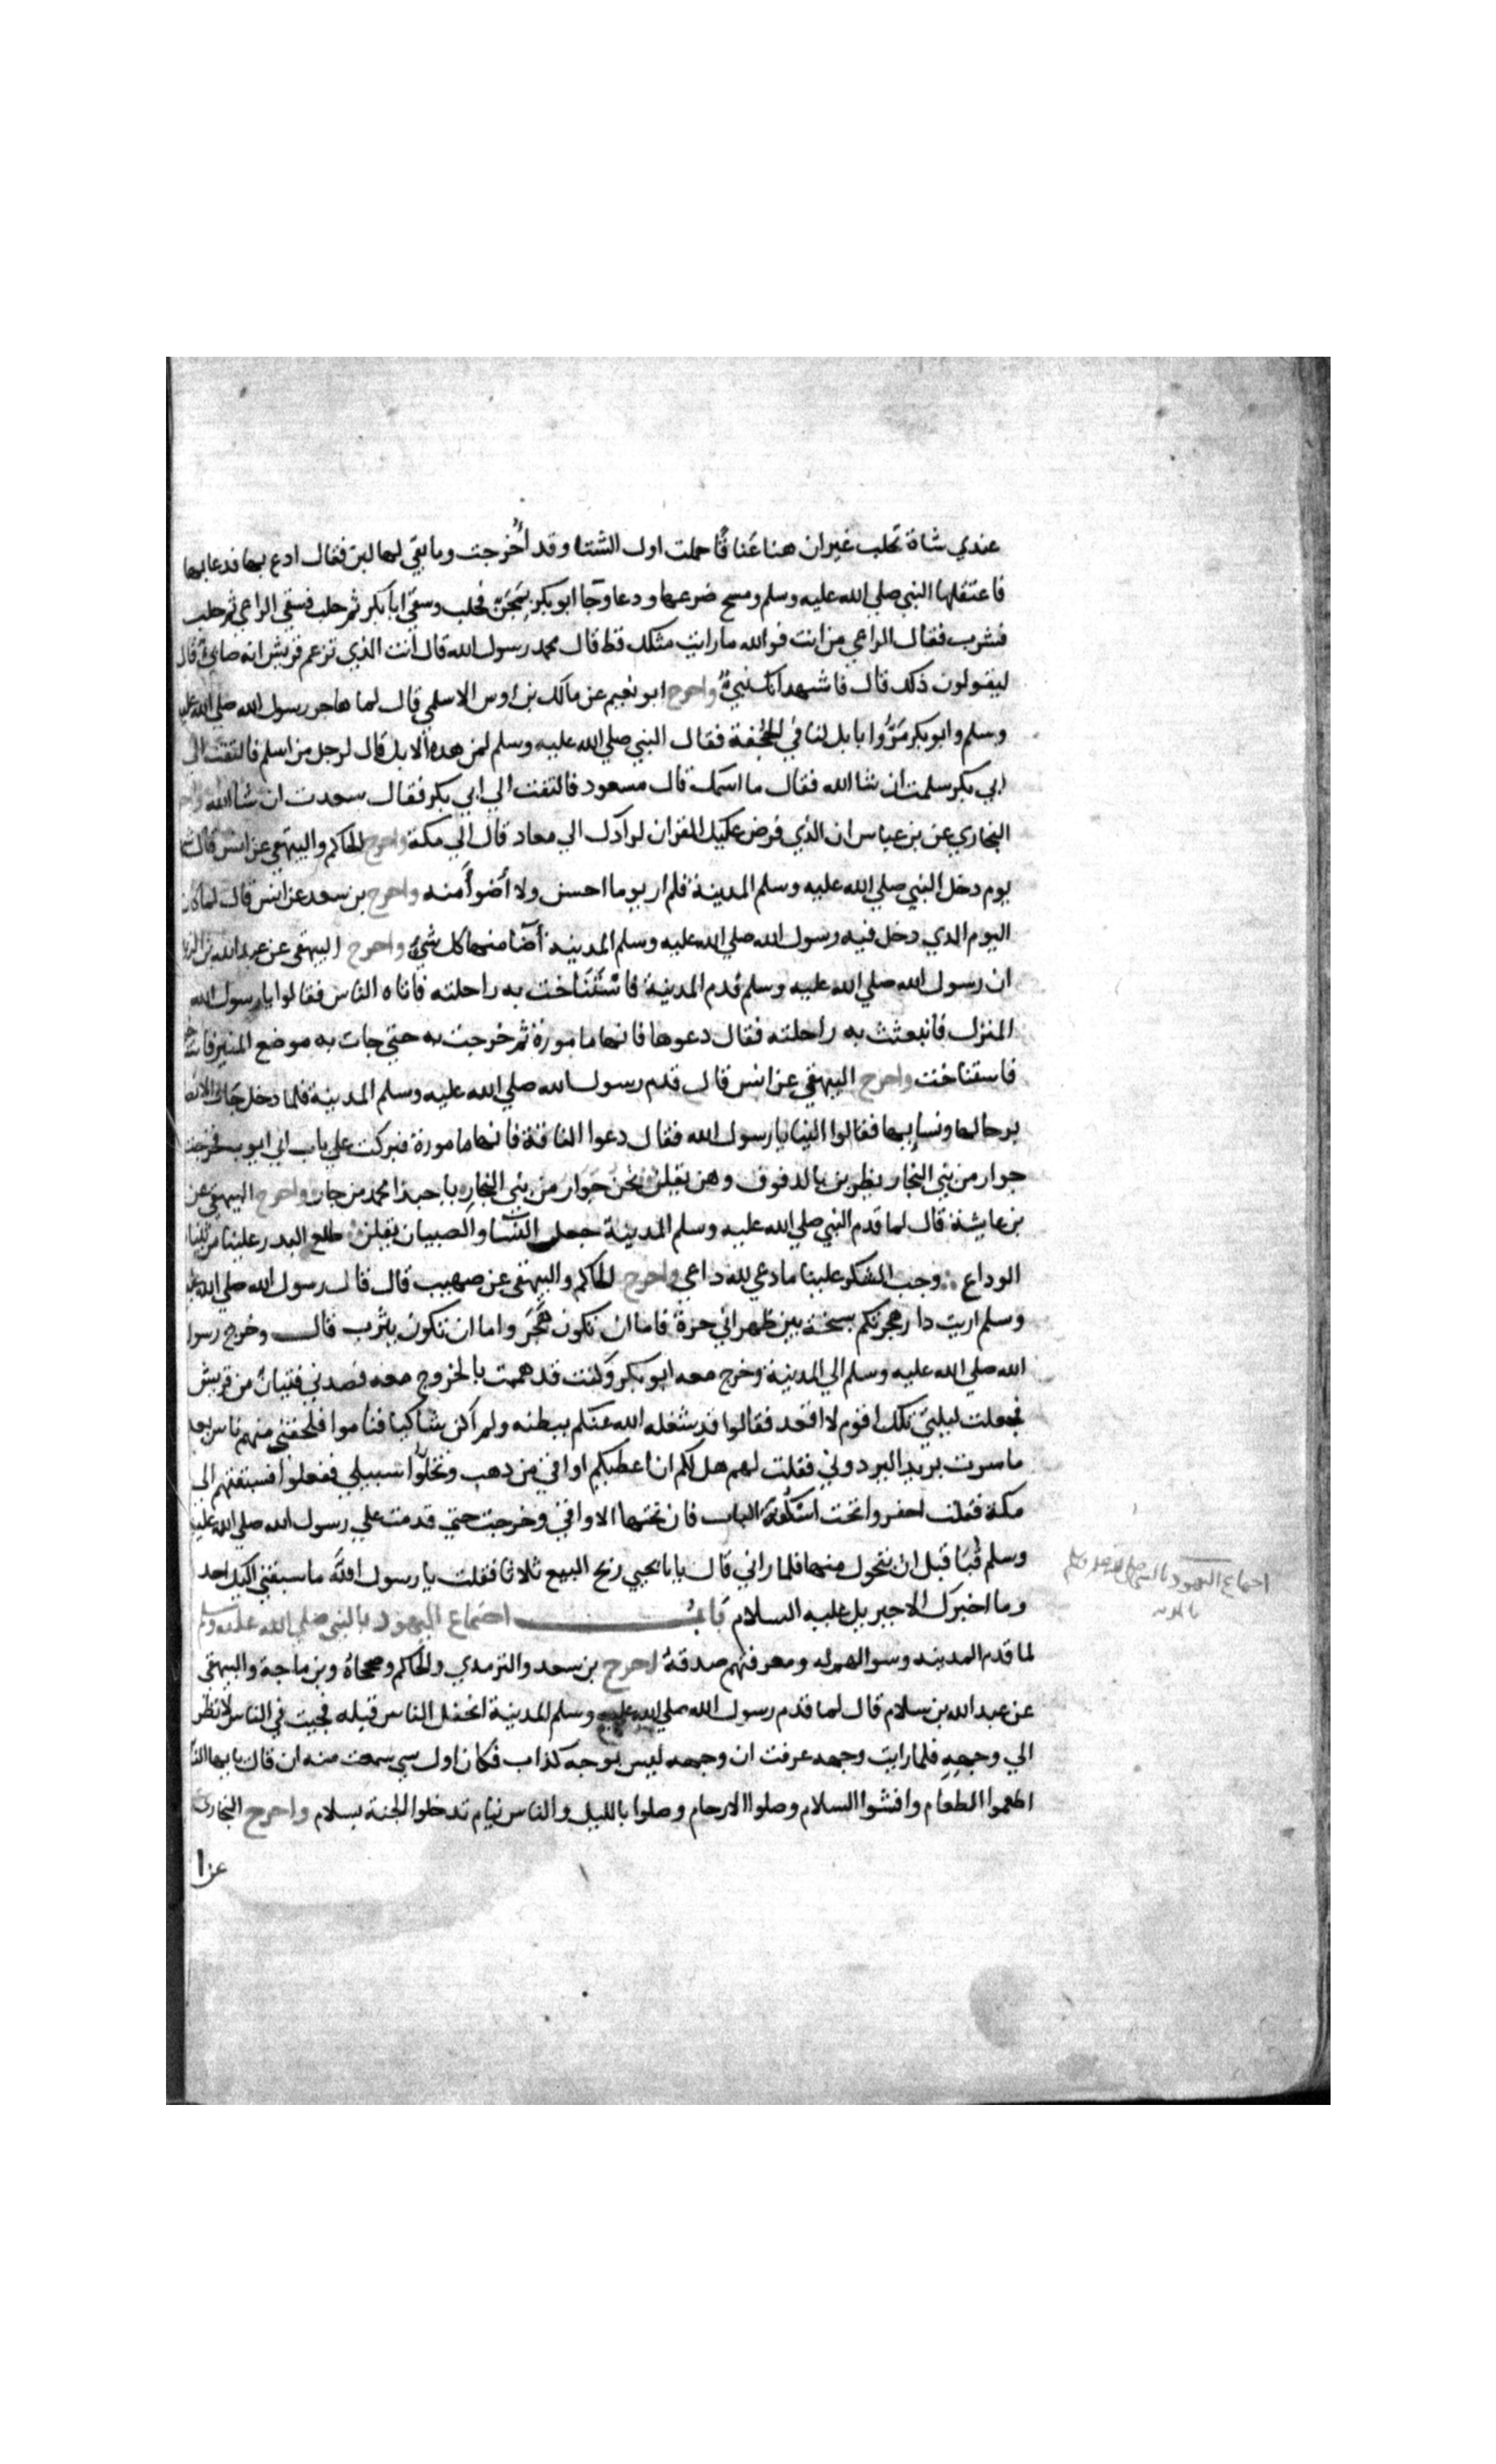 عندي شاة تحلب غير ان هنا عناقًا حملت اول الشتا وقد أخرجت وما بقي لها لبن فقال ادع بها فدعا بها
فاعتقلها النبي صلي الله عليه وسلم ومسح ضرعها ودعا وجا ابو بكر بمجن فحلب وسقي ابا بكر ثم حلب فسقي الراعي ثم حلب
فشرب فقال الراعي من انت فوالله ما رايت مثلك قط قال محمد رسول الله قال انت الذي تزعم قريش انه صابئ قال
ليقولون ذلك قال فاشهد انك نبي واخرج ابو نعيم عن مالك بن اوس الاسلمي قال لما هاجر رسول الله صلي الله عليه
وسلم وابو بكر مرّوا بابل لنا في الجحفة فقال النبي صلي الله عليه وسلم لمن هذه الابل قال لرجل من اسلم فالتفت الي
ابي بكر سلمت ان شا الله فقال ما اسمك قال مسعود فالتفت الي ابي بكر فقال سعدت ان شا الله
البخاري عن بن عباس ان الذي فرض عليك القران لرادك الي معاد قال الي مكة واخرج الحاكم والبيهقي عن انس قال
يوم دخل النبي صلي الله عليه وسلم المدينة فلم ار يوما احسن ولا أضوأ منه واخرج بن سعد عن انس قال لما كان
اليوم الذي دخل فيه رسول الله صلي الله عليه وسلم المدينة أضا منها كل شيئ واخرج البيهقي عن عبد الله بن
ان رسول الله صلي الله عليه وسلم قدم المدينة فاستناخت به راحلته فاتاه الناس فقالوا يا رسول الله
المنزل فانبعثث به راحلته فقال دعوها فانها مامورة ثم خرجت به حتي جات به موضع المنبر
فاستناخت واخرج البيهقي عن انس قال قدم رسول الله صلي الله عليه وسلم المدينة فلما دخل جات
برجالها ونسايها فقالوا الينا يا رسول الله فقال دعوا الناقة فانها مامورة فبركت علي باب ابي ايوب فخرجت
جوار من بني النجار يضربن بالدفوف وهن يقلن نحن جَوَار من بني النجارِ يا حبذا محمد من جار واخرج البيهقي عن
بن عايشة قال لما قدم النبي صلي الله عليه وسلم المدينة جعل النسا والصبيان يقلن طلع البدر علينا من
الوداع وجب الشكر علينا ما دعي لله داعي واخرج الحاكم والبيهقي عن صهيب قال قال رسول الله صلي الله
وسلم اريت دار هجرتكم بسخة بين ظهراني حرة فاما ان تكون هجر واما ان تكون يثرب قال وخرج رسول
الله صلي الله عليه وسلم الي المدينة وخرج معه ابو بكر وكنت قد هممت بالخروج معه فصدني فتيان من قريش
فجعلت ليلتي تلك اقوم لا اقعد فقالوا قد شغله الله عنكم ببطنه ولم اكن شاكيا فناموا فلحقني منهم ناس بعد
ما سرت بريد البردوني فقلت لهم هل لكم ان اعطيكم اواقي من دهب وتخلّوا سبيلي ففعلوا فسبقتهم الي
مكة فقلت احفروا تحت اسكُفة الباب فان تحتها الاواقي وخرجت حتي قدمت علي رسول الله صلي الله عليه
وسلم قبا قبل ان يتحول منها فلما راني قال يا بايحيي ربح البيع ثلاثا فقلت يا رسول الله ما سبقني اليك احد
وما اخبرك الا جبريل عليه السلام باب اجتماع اليهود بالنبي صلي الله عليه وسلم
لما قدم المدينه وسوالهم له ومعرفتهم صدقه اخرج بن سعد والترمدي والحاكم وصححاه وبن ماجة والبيهقي
عن عبد الله بن سلام قال لما قدم رسول الله صلي الله عليه وسلم المدينة انجفل الناس قبله فجيت في الناس لانظر
الي وجهه فلما رايت وجهه عرفت ان وجهه ليس بوجه كذاب فكان اول سي سمعت منه ان قال يا ايها
اطعموا الطعام وافشوا السلام وصلوا الارحام وصلوا بالليل والناس نيام تدخلوا الجنة بسلام واخرج البخاري
عن ا
اجتماع اليهود بالنبي صلى الله عليه وسلم